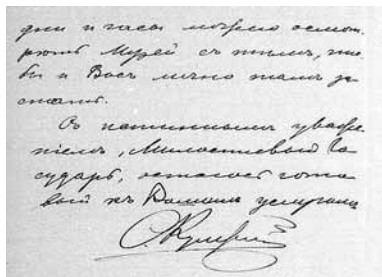 дни и часы можно осмот-
рѣть Музей съ тѣмъ, что-
бы и Васъ лично тамъ за-
стать.
Съ истиннымъ уваже-
ніемъ, Милостивый Го-
сударь, остаюсь гото-
вый къ Вашимъ услугамъ